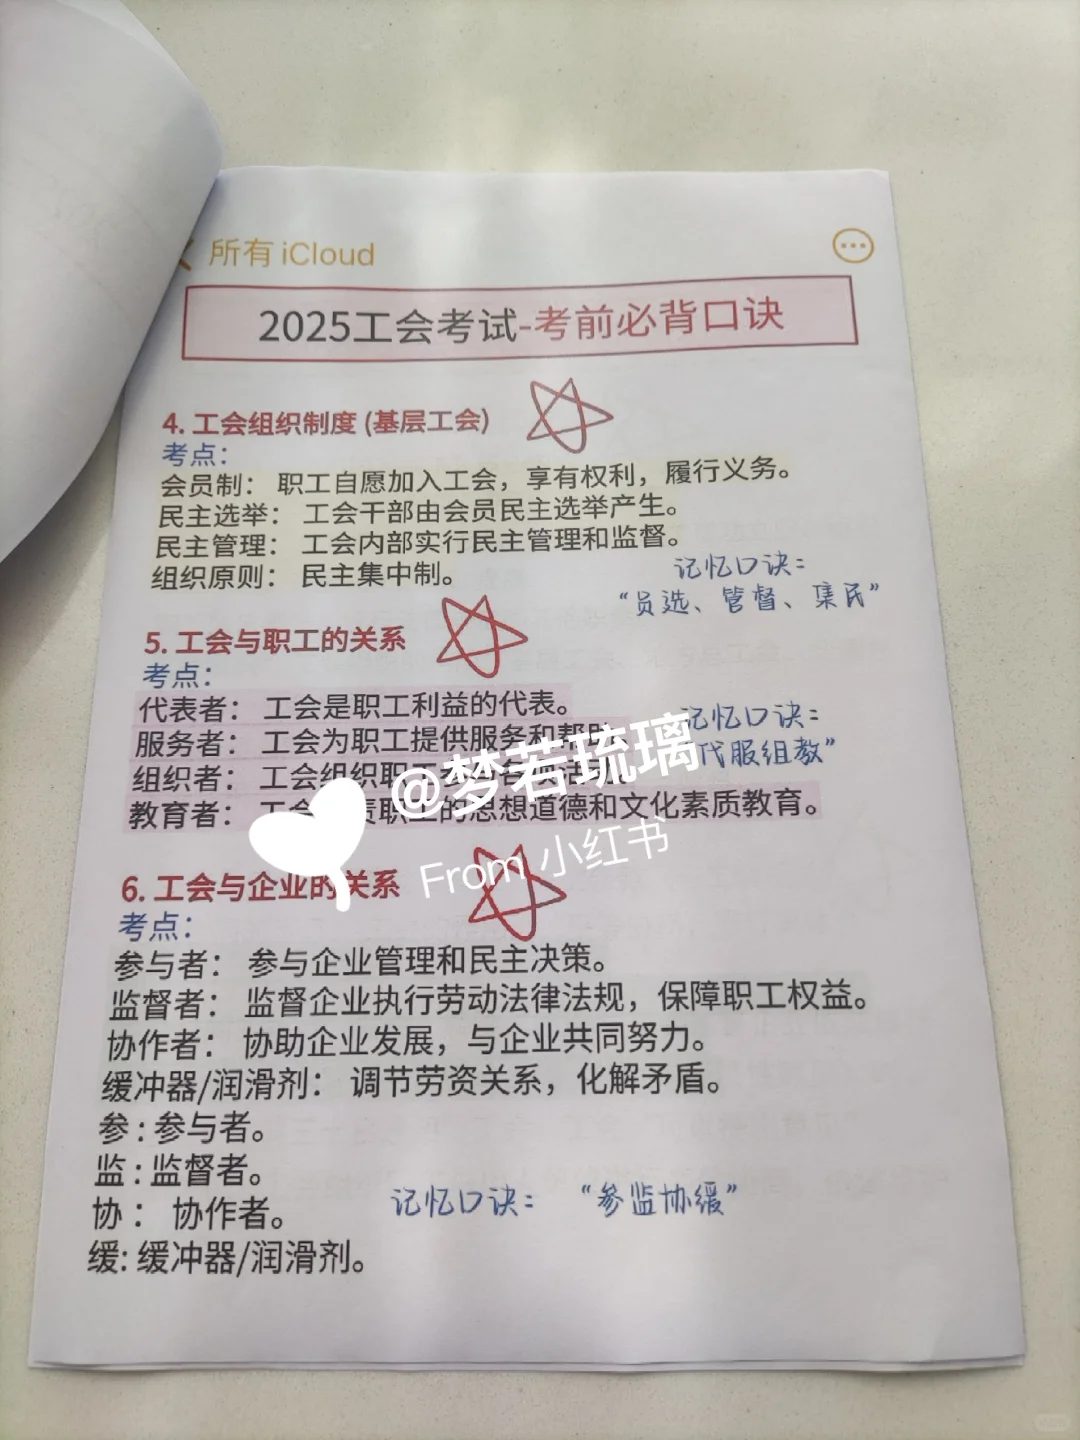 所有 iCloud
2025工会考试-考前必背口诀
4. 工会组织制度 (基层工会)
考点：
会员制： 职工自愿加入工会，享有权利，履行义务。
民主选举： 工会干部由会员民主选举产生。
民主管理： 工会内部实行民主管理和监督。
组织原则： 民主集中制。
记忆口诀：
“员选、管督、集民”
5. 工会与职工的关系
考点：
代表者： 工会是职工利益的代表。
服务者： 工会为职工提供服务和帮助
记忆口诀：
代服组教”
组织者： 工会组织职工
教育者： 工会 责职工的思想道德和文化素质教育。
@梦若琉璃
From 小红书
6. 工会与企业的关系
考点：
参与者： 参与企业管理和民主决策。
监督者： 监督企业执行劳动法律法规，保障职工权益。
协作者： 协助企业发展，与企业共同努力。
缓冲器/润滑剂： 调节劳资关系，化解矛盾。
参：参与者。
监：监督者。
协： 协作者。
缓: 缓冲器/润滑剂。
记忆口诀： “参监协缓”